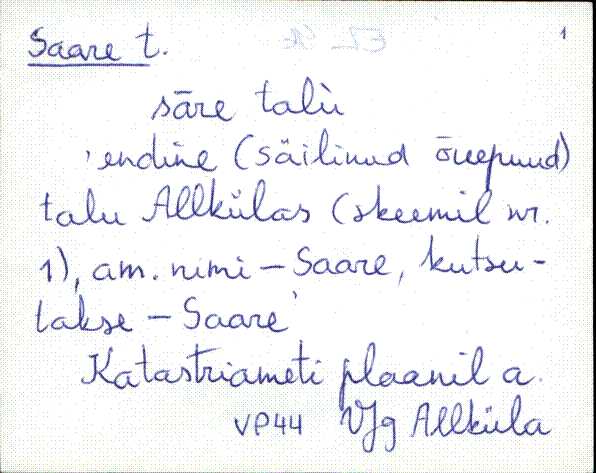 Saare t.
1
sāre talù
'endine (säilinud õuepuud)
talu Allkülas (skeemil nr.
1), am. nimi - Saare, kutsu-
takse - Saare'
Katastriameti plaanil a.
VP44 VJg Allküla